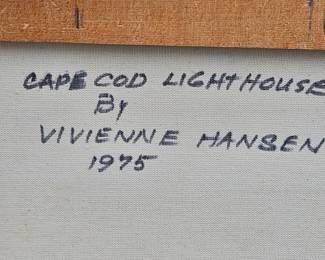 CAPE COD LIGHTHOUSE
By
VIVIENNE HANSEN
1975